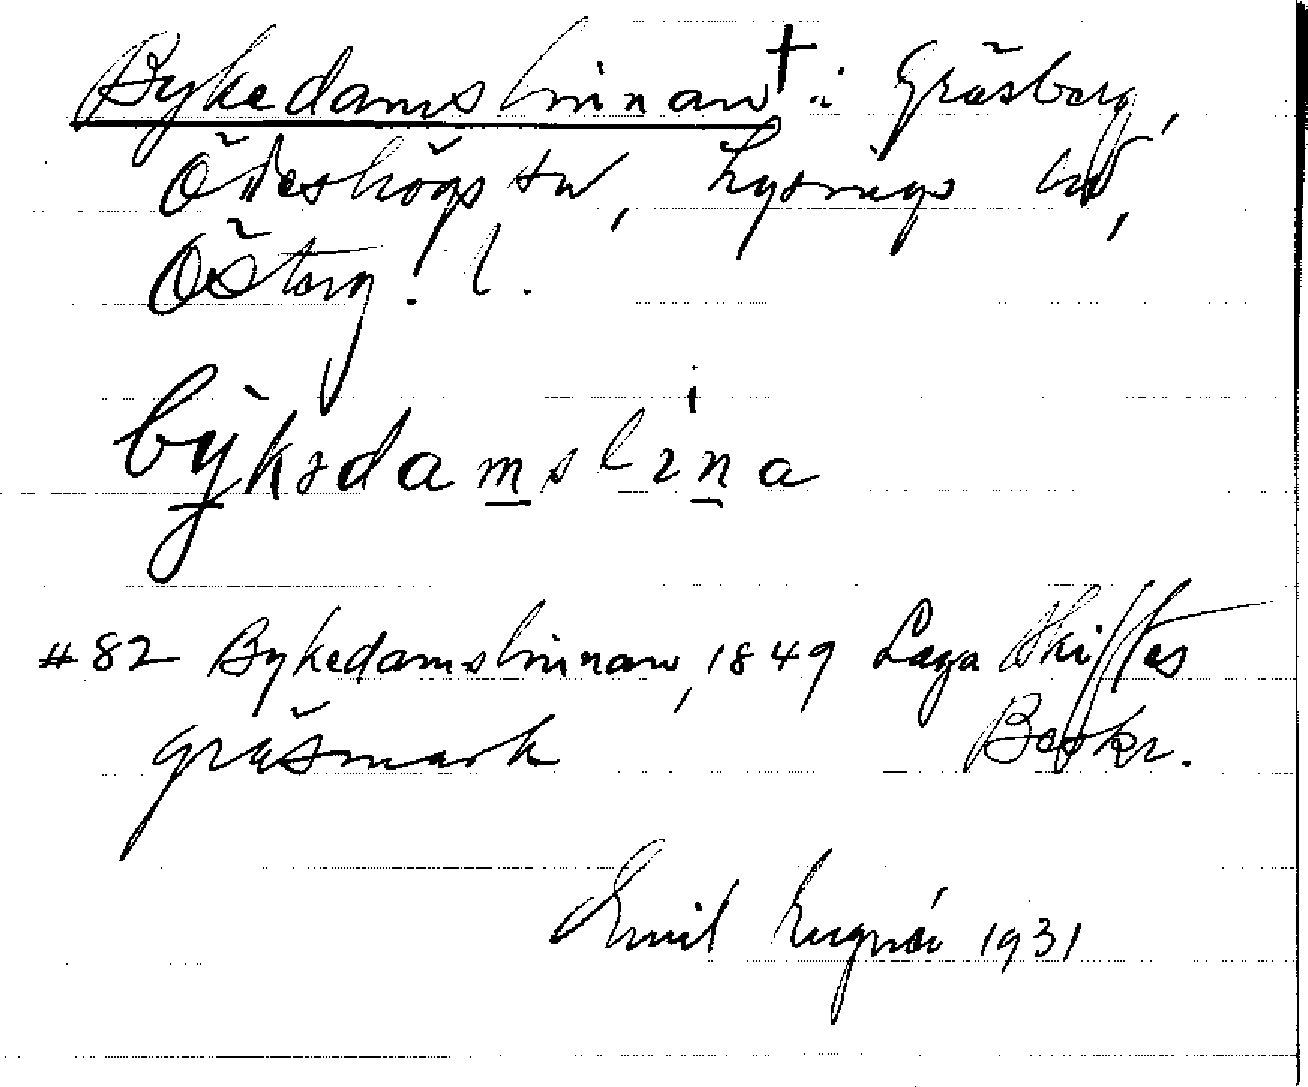 Bykedamslinnan † i Gräsberg,
Ödeshögs sn, Lysings hd,
Österg. l.
by̱kədam̱sliṉa
#82 Bykedamslinnan, 1849 Laga Skiftes
gräsmark Beskr.
Emil 1931